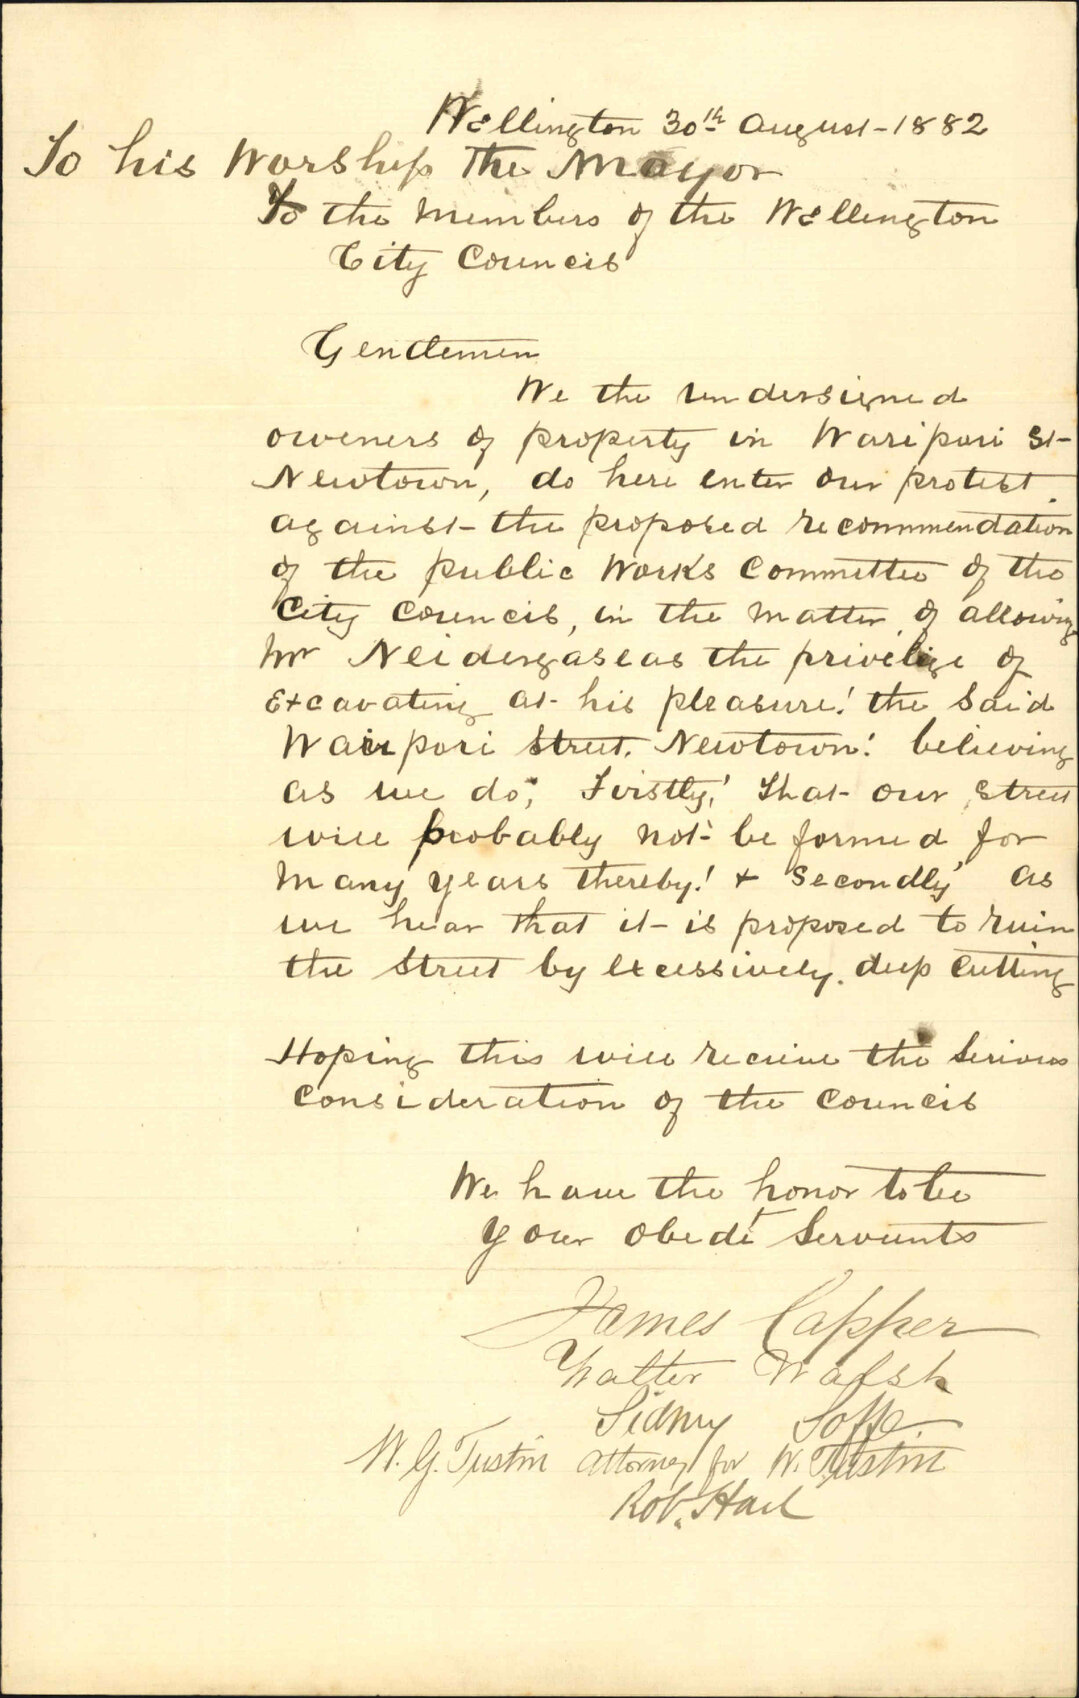 Wellington 30th August - 1882
To his Worship The Mayor
To the Members of the Wellington
City Council
Gentlemen
We the undersigned
owners of property in Waripori St-
Newtown, do here enter our protest
against - the proposed recommendation
of the public Works Committee of the
City Council, in the matter of allowing
Mr the privilige of
Excavating at his pleasure! the Said
Waripori Street. Newtown! believing
as we do; Firstly,! That our Street
will probably not be formed for
Many years thereby! + Secondly As
we hear that it - is proposed to ruin
the Street by excessively. deep cutting
Hoping this will receive the Serious
Consideration of the Council
We have the honor to be
your obedt Servants
James Capper
Walter Walsh
Sidney
W. G. Tustin attorney for W. Tustin
Rob.